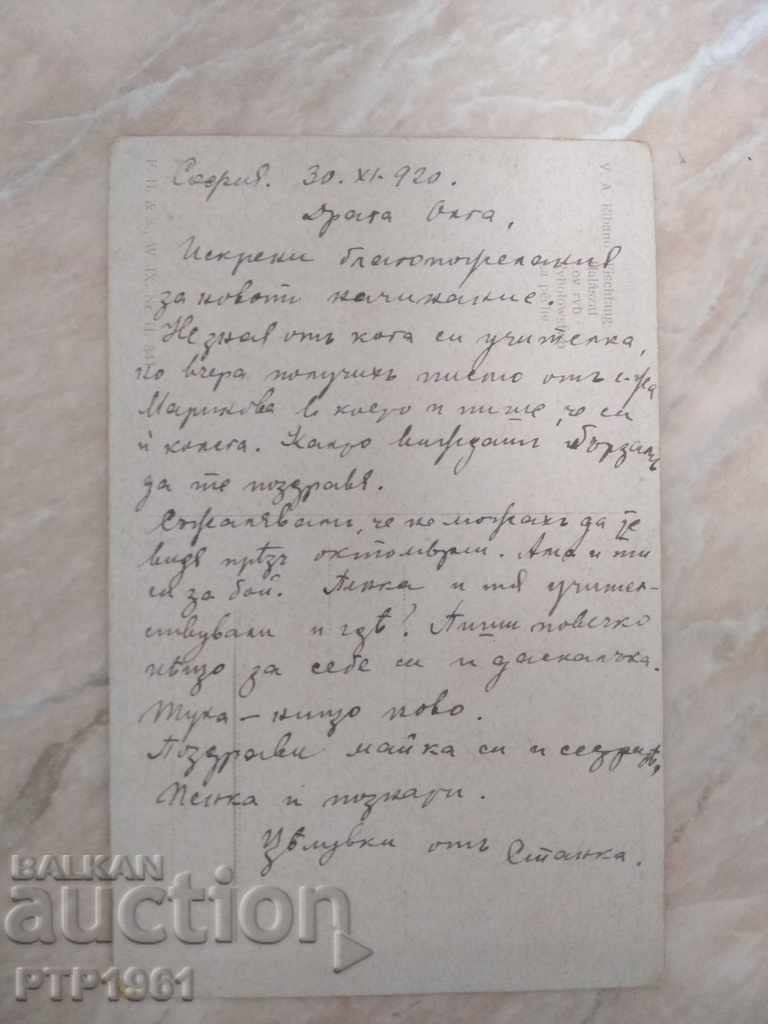 София. 30. XI. 920.
Драга Олга,
Искрени благопожелания
за новото начинание.
Не зная отъ кога си учителка,
но вчера получихъ писмо отъ г-жа
Маринова в което и пише, че си
и колега. Както виждашъ бързамъ
да те поздравя.
Съжалявамъ, че не можахъ да те
видя прѣзъ октомврий. Ама и ти
си за бой. Пенка и тя учител-
ствувала и гдѣ? Пиши повечко
нѣщо за себе си и даскалчка.
Тука – нищо ново.
Поздрави майка си и сестритѣ,
Пенка и познати.
Цѣлувки отъ Станка.
V. A. Ribano
Fischfang
Halászat
ov ryb
BALKAN
auction
PTP1961